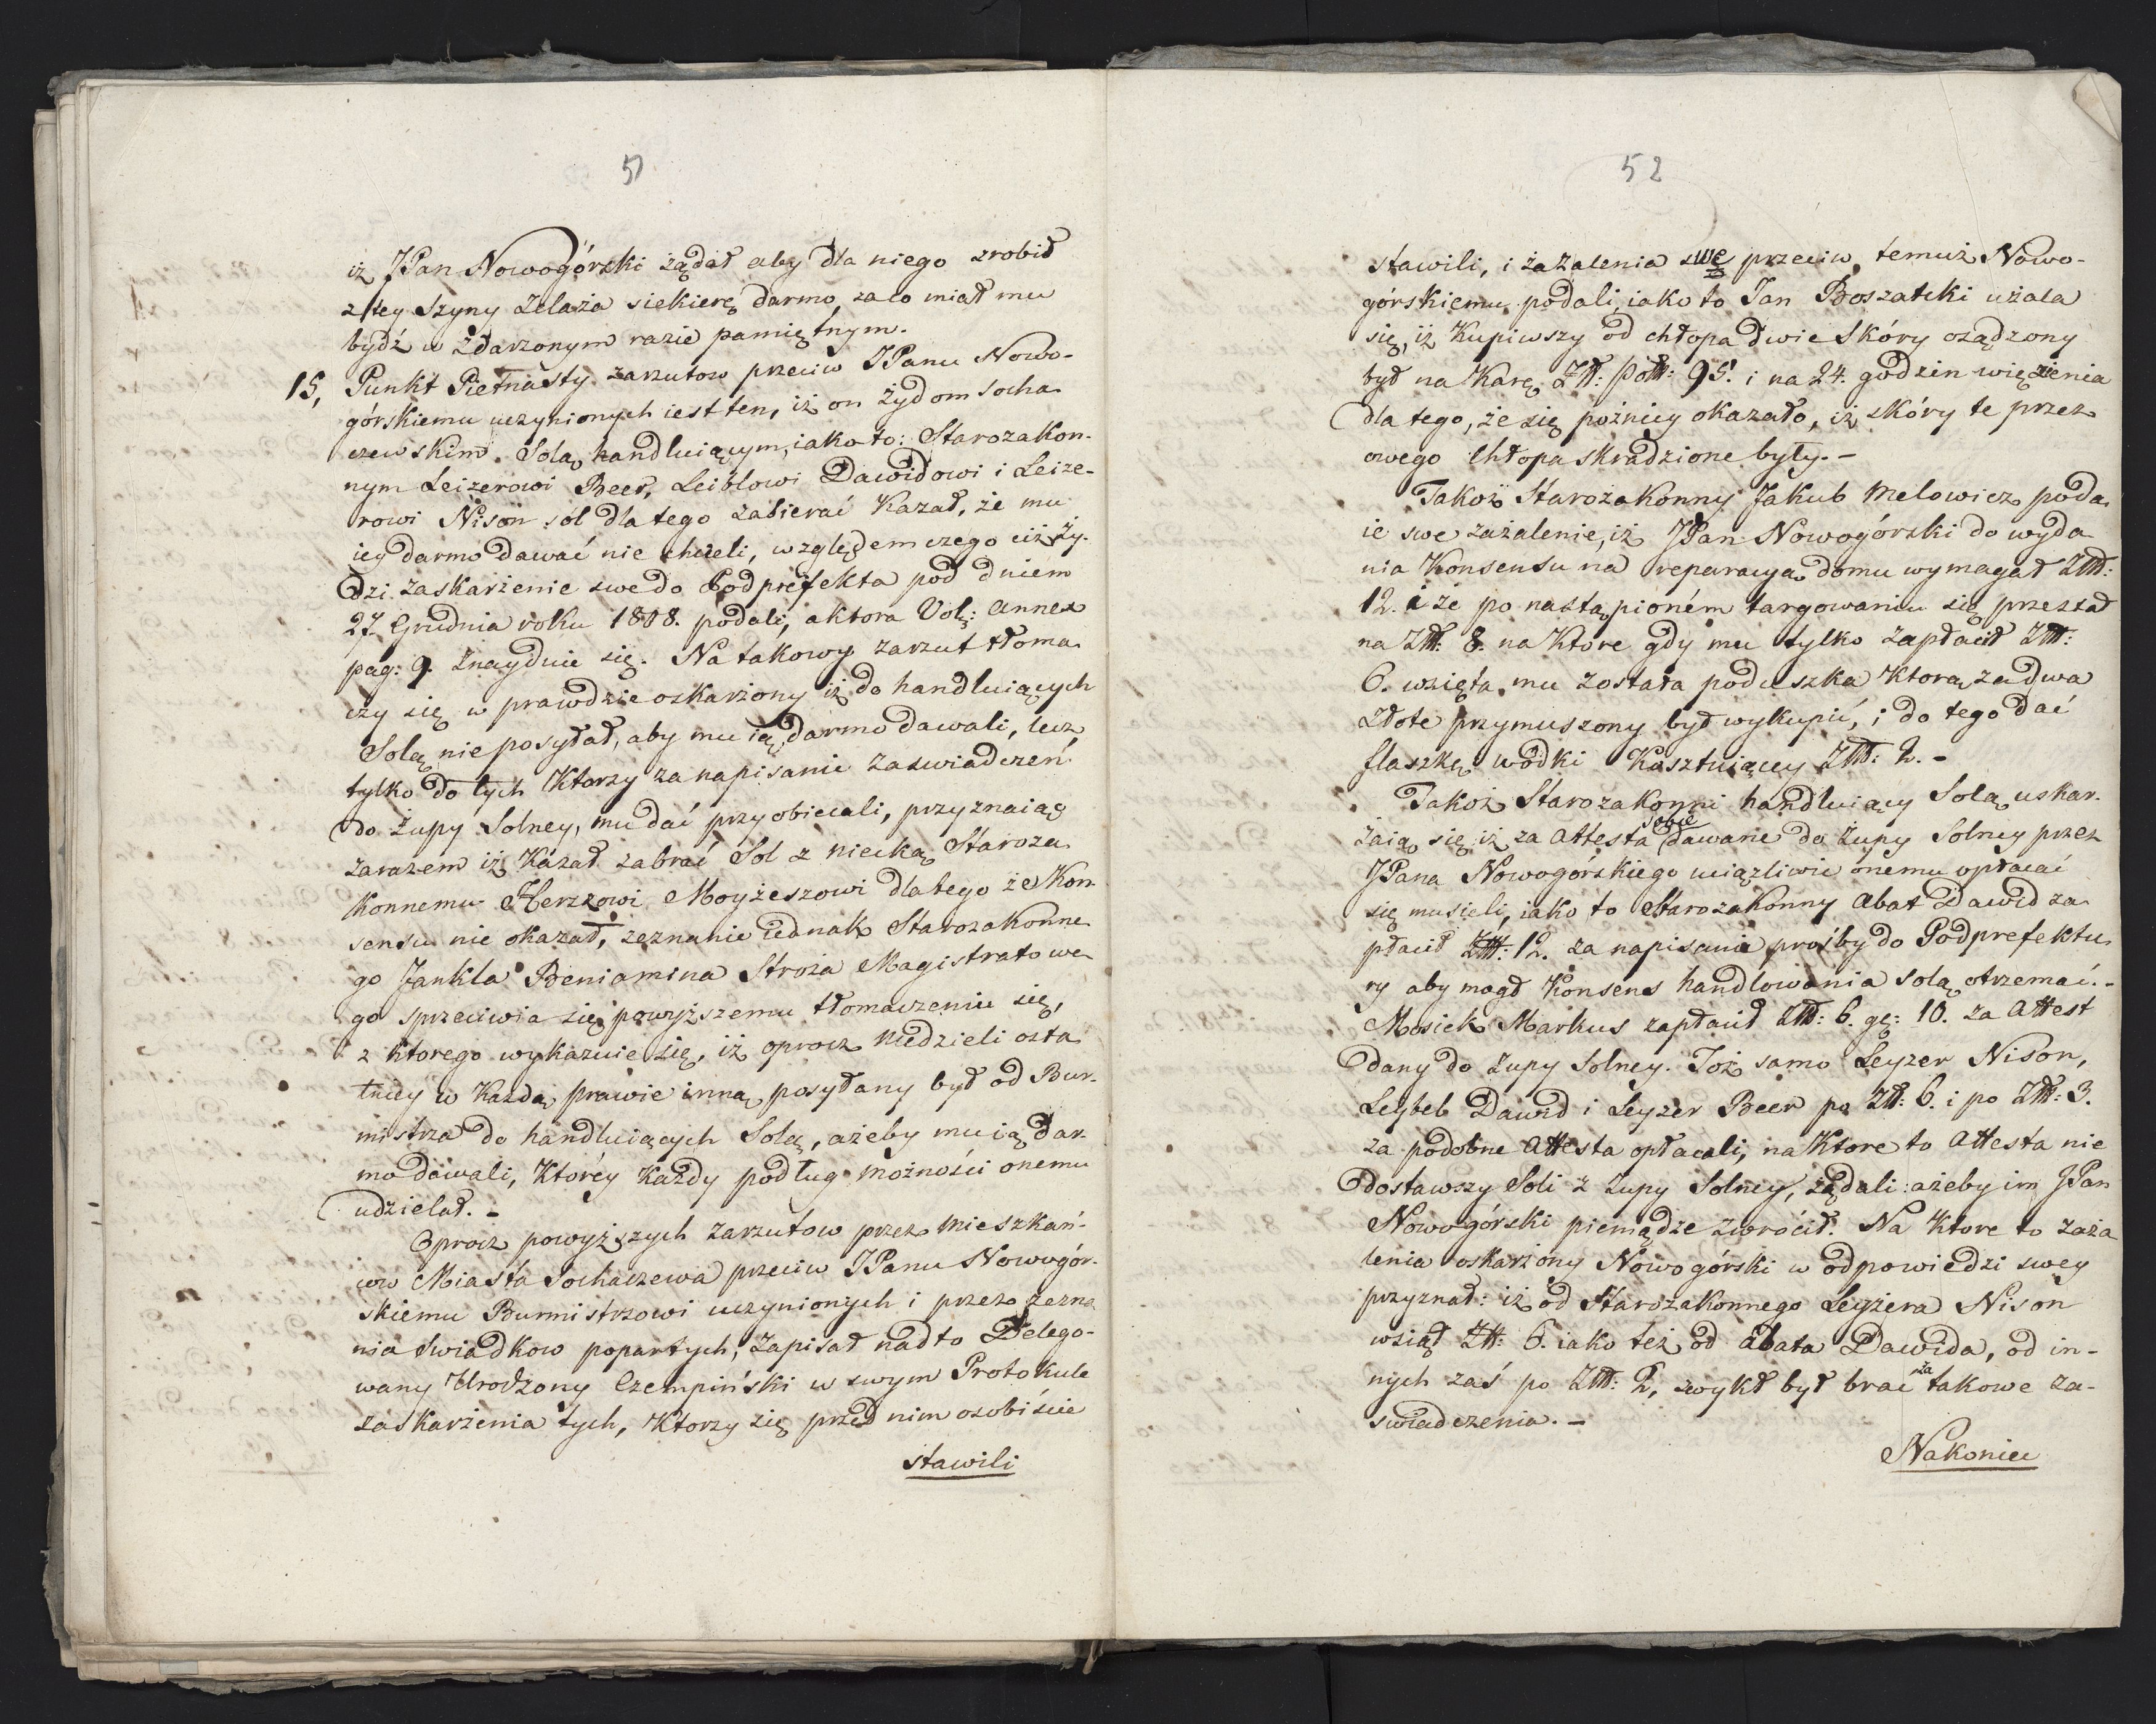 51
iż JPan Nowogórski żądał aby dla niego zrobił
z tey Szyny Żelaza siekierę darmo, za co miał mu
bydź w zdarzonym razie pamiętnym.
15, Punkt Piętnasty zarzutow przeciw JPanu Nowo-
górskiemu uczynionych iest ten, iż on Żydom Socha
czewskim Solą handluiącym, iako to: Starozakon-
nym Leizerowi Beer, Leiblowi Dawidowi i Leize-
rowi Nison sól dla tego zabierać Kazał, że mu
iey darmo dawać nie chcieli, względem czego ciż Ży-
dzi zaskarżenie swe do Podprefekta pod dniem
27 Grudnia roku 1808. podali, a ktora Vol: annex
pag: 9. znayduie się. Na takowy zarzut tłoma
czy się w prawdzie oskarżony iż do handluiących
Solą nie posyłał, aby mu ią darmo dawali, lecz
tylko do tych Ktorzy za napisanie zaswiadczeń
do Żupy Solney, mu dać przyobiecali, przyznaiąc
zarazem iż Kazał zabrać Sol z niecką Staroza
konnemu Herszkowi Moyżeszowi dla tego że Kon
sensu nie okazał, zeznanie iednak Starozakonne
go Jankla Beniamina Stroża Magistratowe
go sprzeciwia się powyższemu tłomaczeniu się,
z ktorego wykazuie się, iż oprocz Niedzieli osta
tniey w Każdą prawie inną posyłany był od Bur-
mistrza do handluiących Solą, ażeby mu ią dar-
mo dawali, Ktoréy Każdy podług możności onemu
udzielał. -
Oprocz powyższych zarzutow przez Mieszkań-
cow Miasta Sochaczewa przeciw JPanu Nowogór-
skiemu Burmistrzowi uczynionych i przez zezna
nia Swiadkow popartych, zapisał nadto Delego-
wany Urodzony Czempiński w swym Protokule
zaskarżenia tych, Ktorzy się przed nim osobiście
stawili
52
stawili, i zażalenia swe przeciw temuż Nowo-
górskiemu podali, iako to Jan Boszatcki użala
się, iż Kupiwszy od chłopa dwie Skóry osądzony
był na Karę Złł: 95. i na 24. godzin więzienia
dla tego, że się poźniey okazało, iż skóry te przez
owego Chłopa skradzione były. -
Takoż Starozakonny Jakub Melowicz poda
ie swe zażalenie, iż JPan Nowogórski do wyda
nia Konsensu na reparacyą domu wymagał Złł:
12. i że po nastąpioném targowaniu się przestał
na Złł: 8. na Ktore gdy mu tylko zapłacił Złł:
6. wzięta mu została poduszka Ktorą za dwa
złote przymuszony był wykupić, i do tego dać
flaszkę wodki Kosztuiącey Złł: 2. -
Takoż Starozakonni handluiący Solą uskar-
żaią się iż za Attesta sobie dawane do Żupy Solney przez
JPana Nowogórskiego uciązliwie onemu opłacać
się musieli, iako to Starozakonny Abat Dawid za
płacił Złł: 12. za napisanie proźby do Podprefektu
ry aby mogł Konsens handlowania solą otrzemać. -
Mosiek Markus zapłacił Złł: 6. gę: 10. za Attest
dany do Żupy Solney. Toż samo Leyzer Nison,
Leybel Dawid i Leyzer Beer po Złł: 6. i po Złł: 3.
za podobne Attesta opłacali, na Ktore to Attesta nie
dostawszy Soli z Żupy Solney, żądali: ażeby im JPan
Nowogórski pieniądze zwrócił. Na Ktore to zaża
lenia oskarżony Nowogórski w odpowiedzi swey
przyznał: iż od Starozakonnego Leyzera Nison
wziął Złł: 6. iako też od Abata Dawida, od in-
nych zaś po Złł: 2, zwykł był brać za takowe za-
swiadczenia. -
Nakoniec